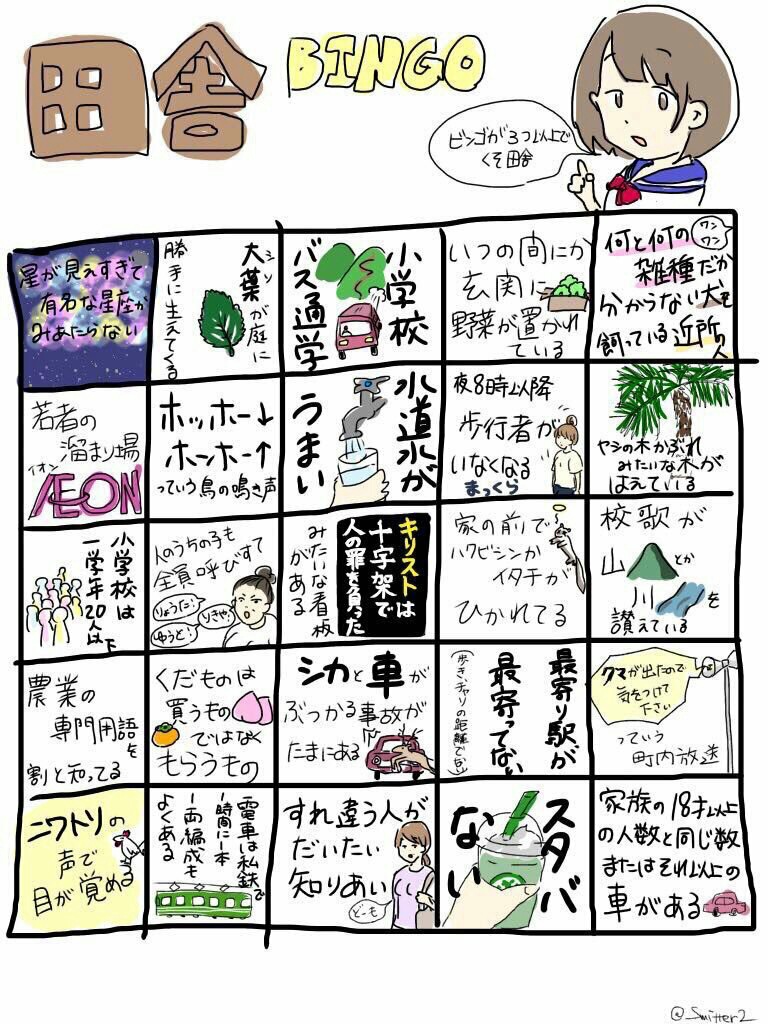 田舎
BINGO
ビンゴが3つ以上で
くそ田舎
星が見えすぎて
有名な星座が
みあたらない
大葉が庭に
シソ
勝手に生えてくる
小学校
バス通学
いつの間にか
玄関に
野菜が置かれ
ている
ワン
ワン
何と何の
雑種だか
分からない犬を
飼っている近所の人
若者の
溜まり場
イオン
ÆON
ホッホー↓
ホーホー↑
っていう鳥の鳴き声
水道水が
うまい
夜8時以降
歩行者が
いなくなる
まっくら
ヤシの木かぶれ
みたいな木が
はえている
小学校は
一学年20人以下
人のうちの子も
全員呼びすて
りょうた!
りきや!
ゆうと!
キリストは
十字架で
人の罪を負った
みたいな看板
がある
家の前で
ハクビシンか
イタチが
ひかれてる
校歌が
山とか
川を
讃えている
農業の
専門用語を
割と知ってる
くだものは
買うもの
ではなく
もらうもの
シカと車が
ぶつかる事故が
たまにある
最寄り駅が
最寄ってない
(歩き、チャリの距離でない)
クマが出たので
気をつけて
下さい
っていう
町内放送
ニワトリの
声で
目が覚める
電車は私鉄で
一時間に一本
一両編成も
よくある
すれ違う人が
だいたい
知りあい
どーも
スタバ
ない
家族の18才以上
の人数と同じ数
またはそれ以上の
車がある
@_Smitter2